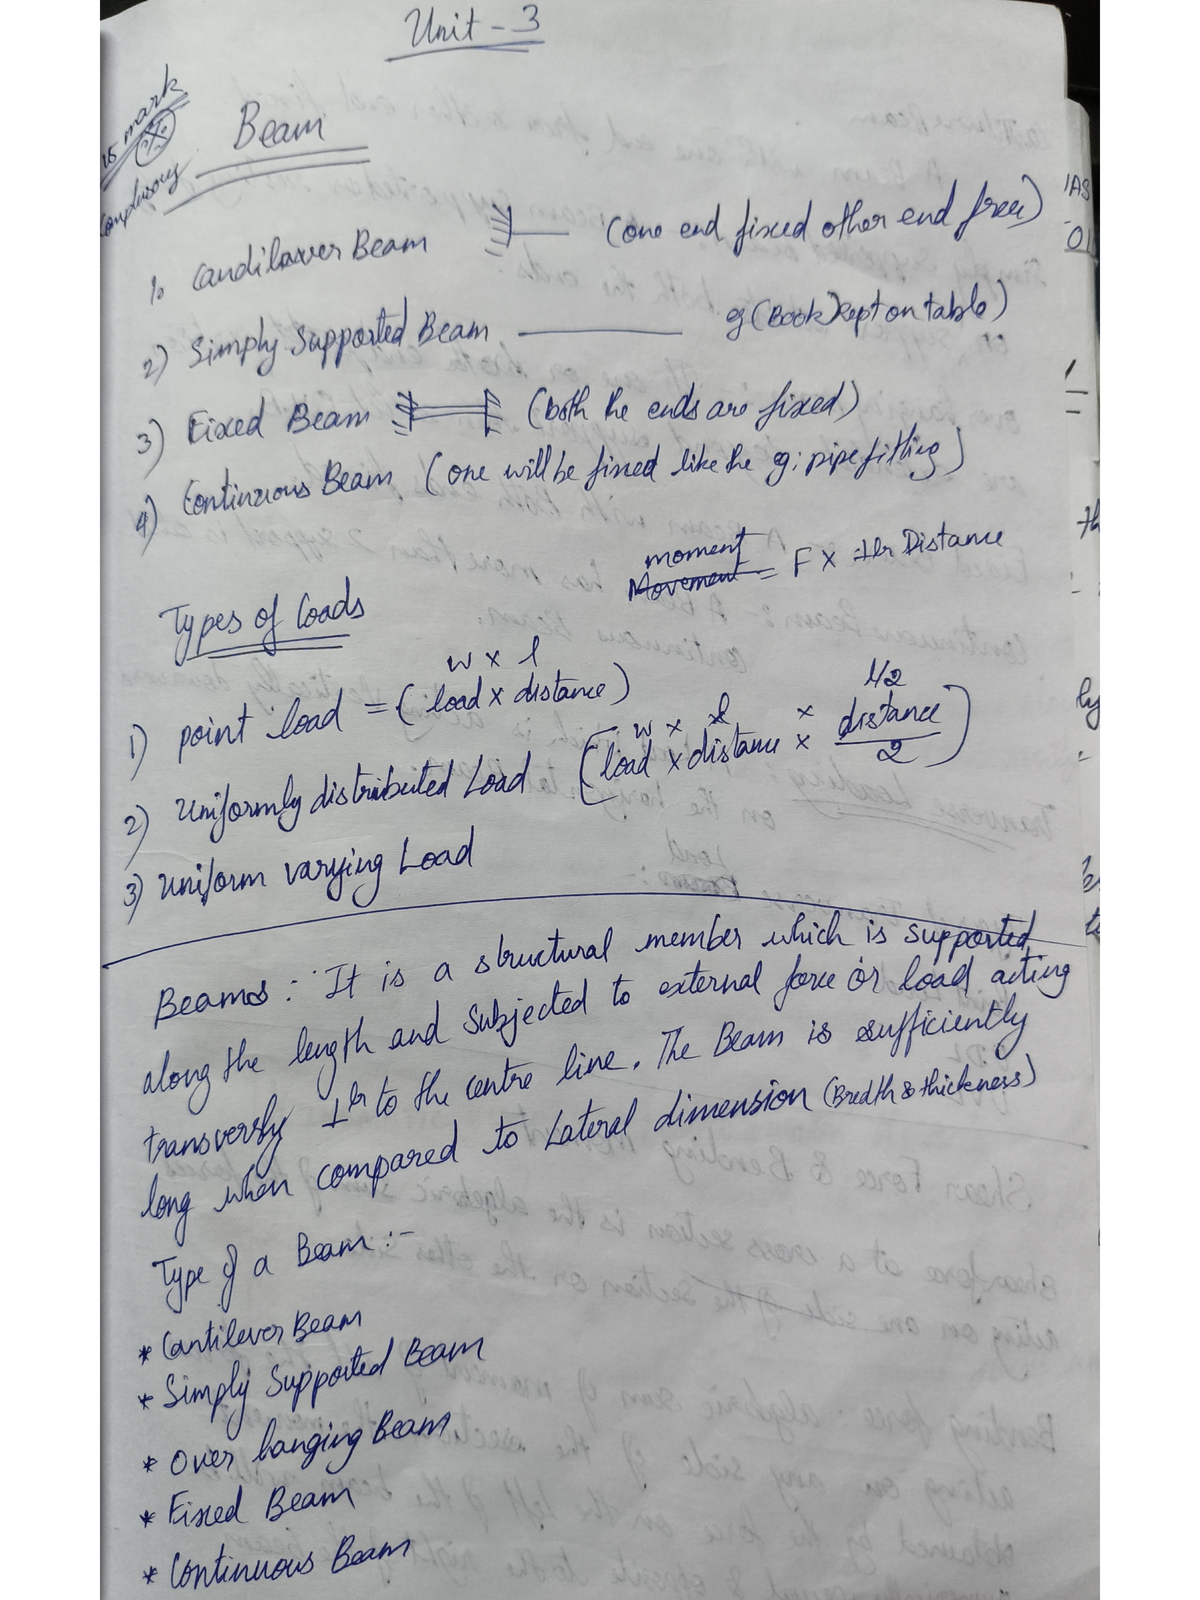 Unit - 3
15 mark
Complusory
Beam
1. Candilaver Beam (one end fixed other end free)
2) Simply Supported Beam eg (Book) kept on table)
3) Fixed Beam (both the ends are fixed)
4) Continuous Beam (one will be fixed like the eg: pipe fitting)
moment
Movement = F x ⊥lr Distance
Types of Loads
w x l
1) point load = (load x distance)
w x l x l/2
2) Uniformly distributed Load [load x distance x distance/2]
3) Uniform varying Load
Beams : It is a structural member which is supported
along the length and subjected to external force or load acting
transversly ⊥lr to the centre line. The Beam is sufficiently
long when compared to Lateral dimension (Bredth & thickness)
Type of a Beam :-
* Cantilever Beam
* Simply Supported Beam
* Over hanging Beam
* Fixed Beam
* Continuous Beam